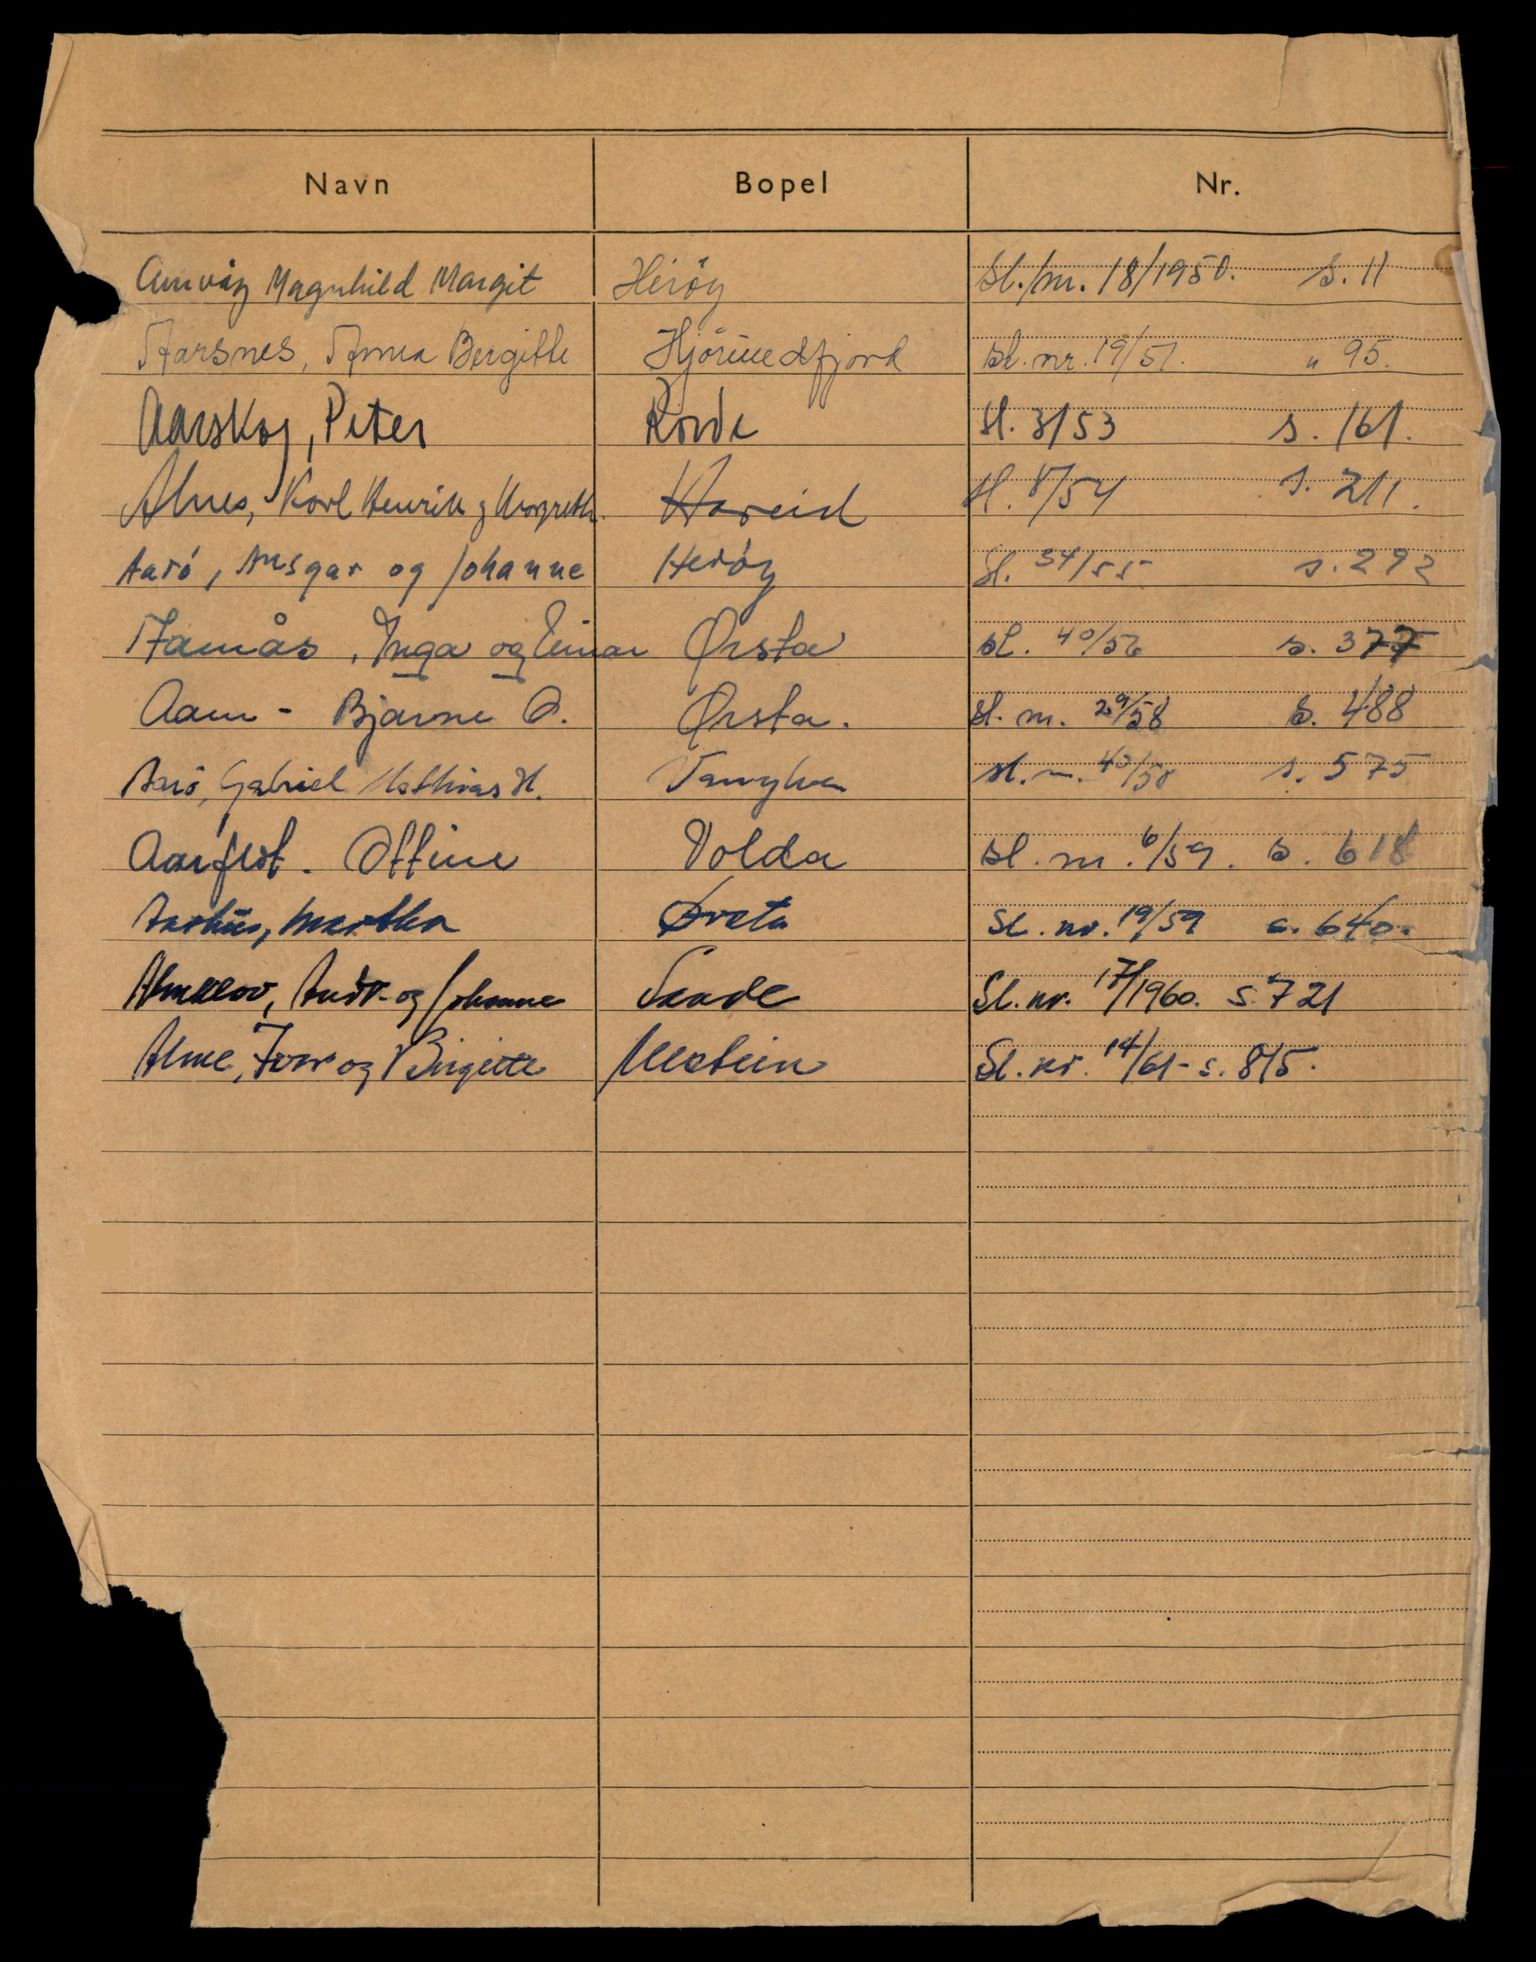 Navn Bopel Nr.
Magnhild Margit Herøy Sl./nr. 18/1950. s. 11
Aarsnes, Anna Bergitte Hjørundfjord sl. nr. 19/51. " 95.
Aarskog, Peter Rovde Sl. 3/53 s. 161.
Alnes, Karl Henrik og Margrethe. Hareid Sl. 8/54 s. 211.
Aarö, Ansgar og Johanne Herøy Sl. 34/55 s. 292
Aamås, Inga og Einar Ørsta sl. 40/56 s. 377
Aam - Bjarne O. Ørsta. sl. nr. 29/58 s. 488
Aarö, Gabriel Mathias H. Vanylven sl. nr. 40/58 s. 575
Aarflot. Ottine Volda sl. nr. 6/59. s. 618
Aarhus, Martha Ørsta Sl. nr. 19/59 s. 640.
Almklov, Andr. og Johanne Sande Sl. nr. 17/1960. s. 721
Alme, Ivar og Birgitte Ulstein Sl. nr. 14/61 - s. 815.